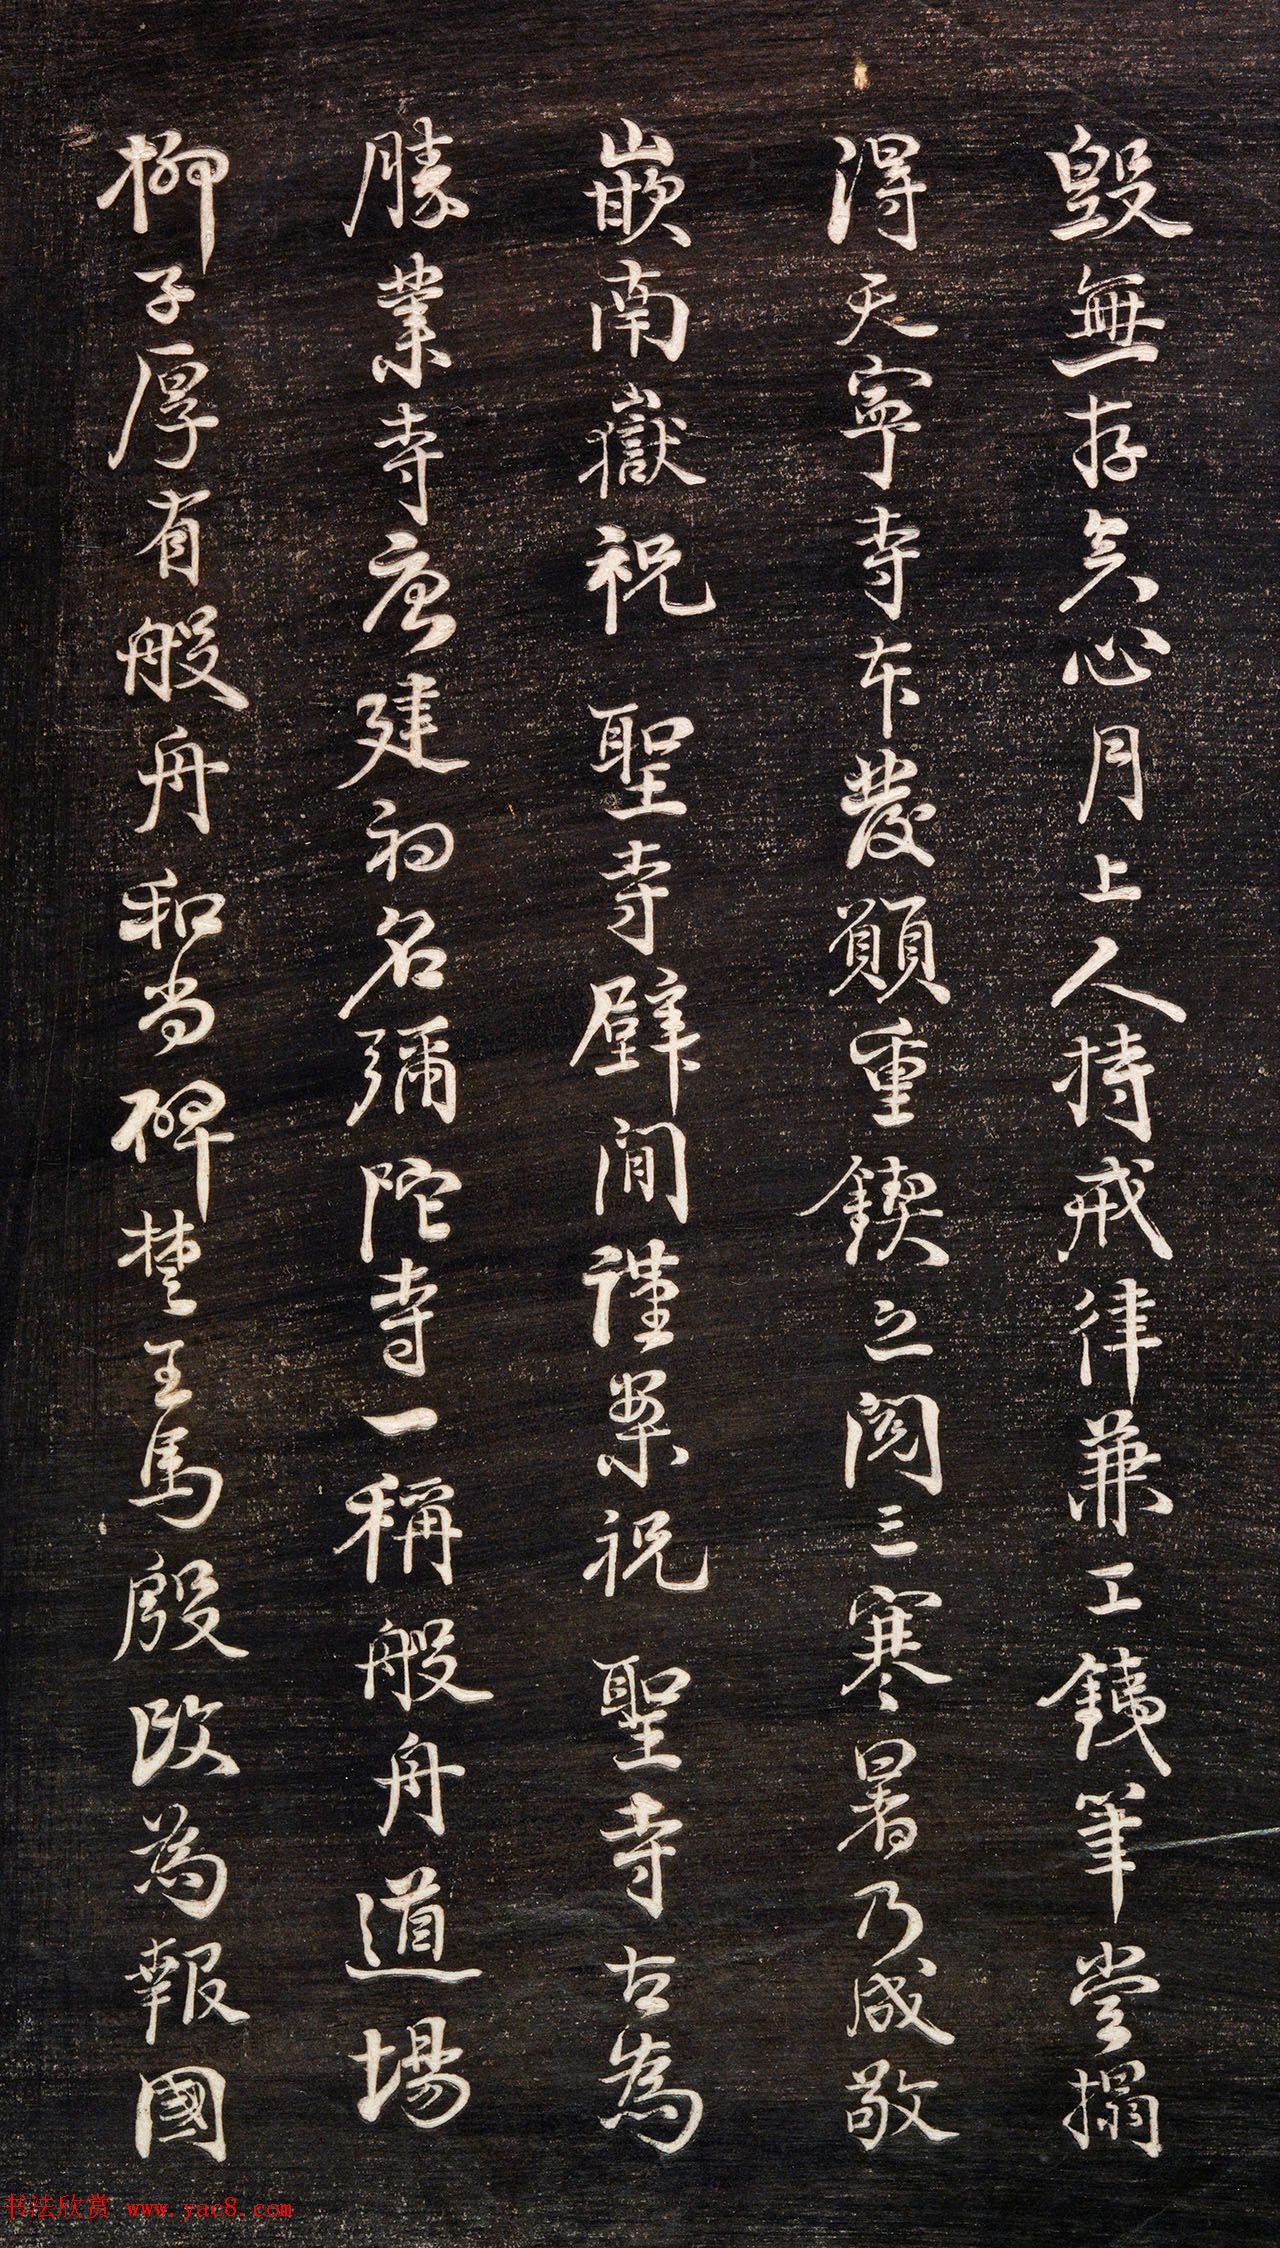 毀無存矣心月上人持戒律兼工鐵筆嘗搨
得天寧寺本發願重鍥之閱三寒暑乃成敬
嵌南嶽祝聖寺壁間謹案祝聖寺古為
勝業寺唐建初名彌陀寺一稱般舟道場
柳子厚有般舟和尚碑楚王馬殷改為報國
书法欣赏 www.yac8.com